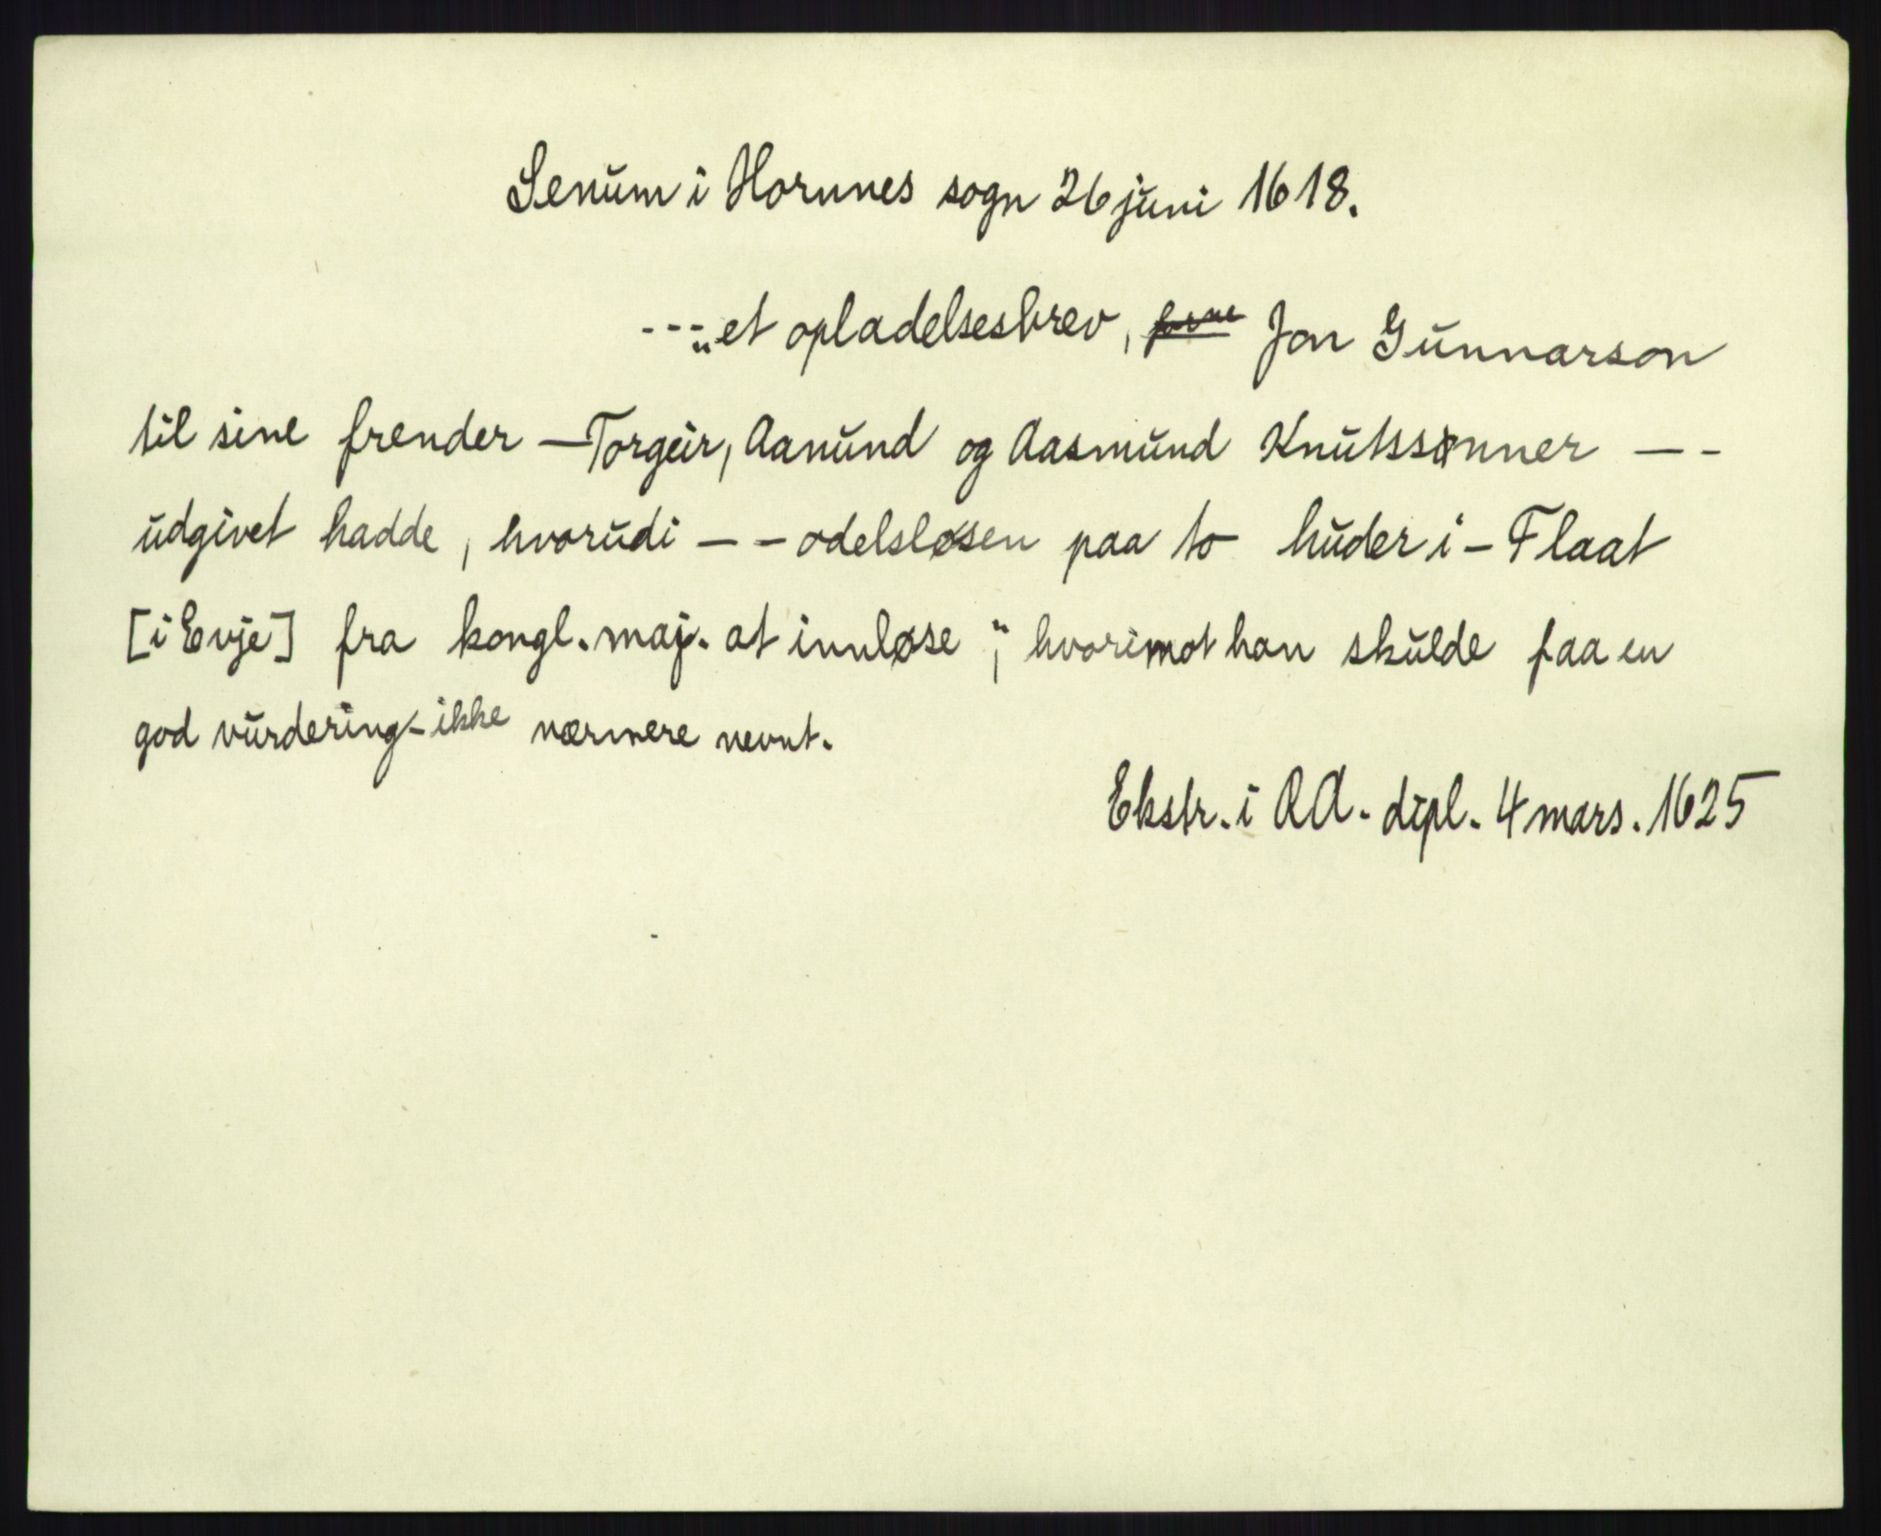 Senum i Hornnes sogn 26 juni 1618.
---„et opladelsesbrev, Jon Gunnarson
til sine frender — Torgeir, Aanund og Aasmund Knutssønner — -
udgivet hadde, hvorudi — — odelsløsen paa to huder i — Flaat
[i Evje] fra kongl. maj. at innløse“, hvorimot han skulde faa en
god vurdering - ikke nærmere nevnt.
Ekstr. i AA. dipl. 4 mars. 1625